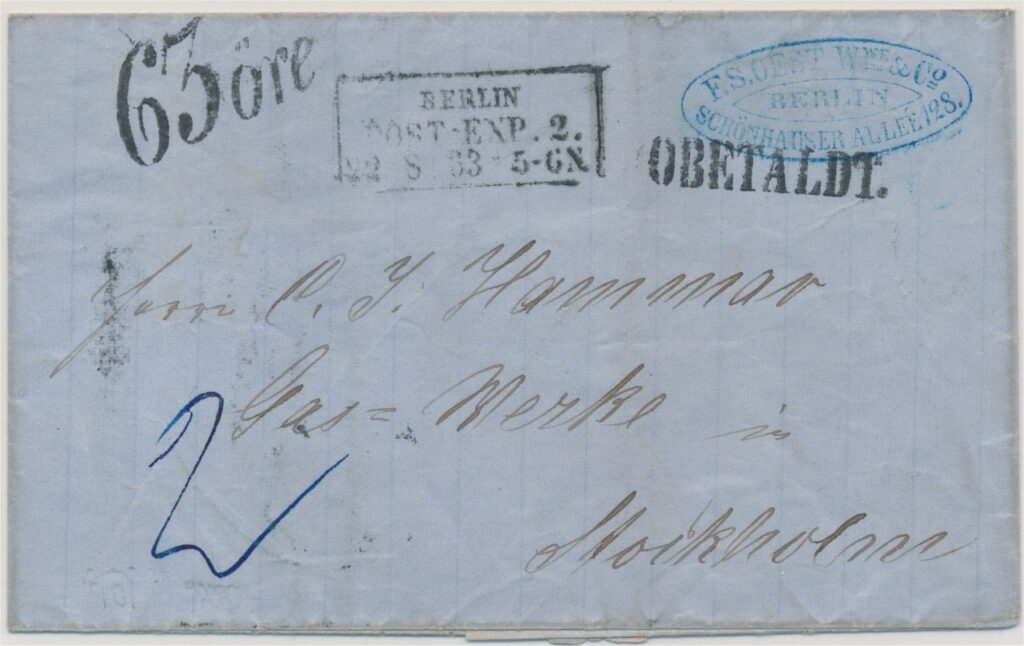 63 öre
BERLIN
POST-EXP. 2.
22 8 63 5-6N
F.S. OEST Wwe & Co
BERLIN
SCHÖNHAUSER ALLEE 128.
OBETALDT.
Herrn C. J. Hammar
Gas= Werke in
Stockholm
2